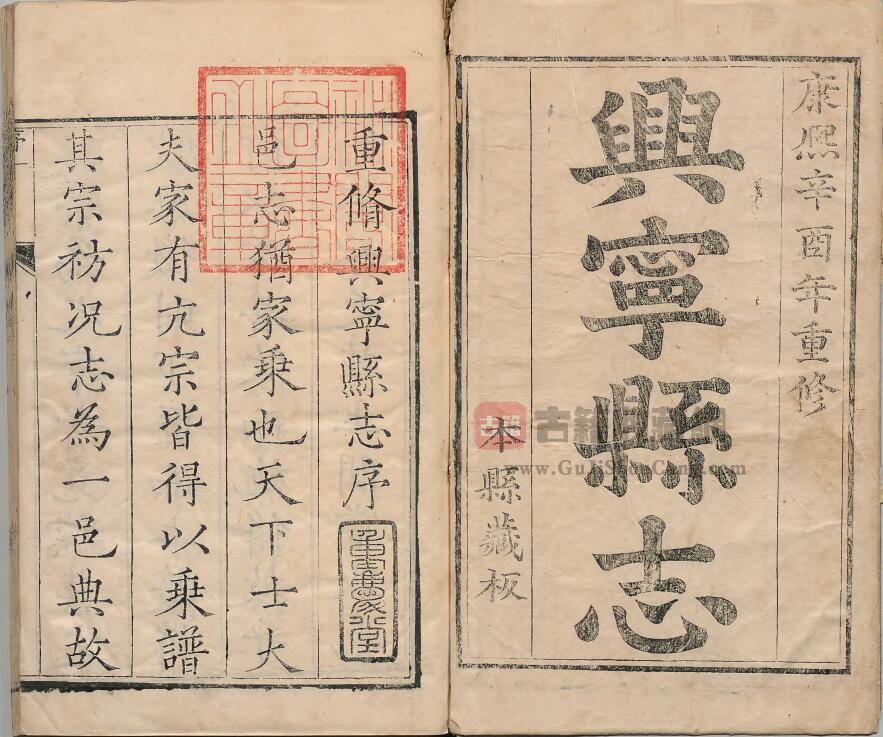 康熙辛酉年重修
興寧縣志
本縣藏板
古籍
www.GujiShuCang.com
重脩興寧縣志序
邑志猶家乘也天下士大
夫家有亢宗皆得以乘譜
其宗祊况志為一邑典故